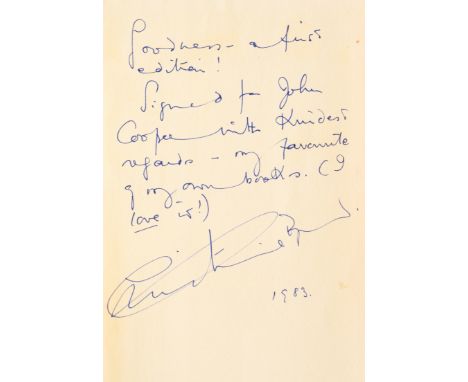 Goodness - a first
edition!
Signed for John
Cooper with Kindest
regards - my favourite
of my own books. (I
love it!)
Christianna Brand.
1983.